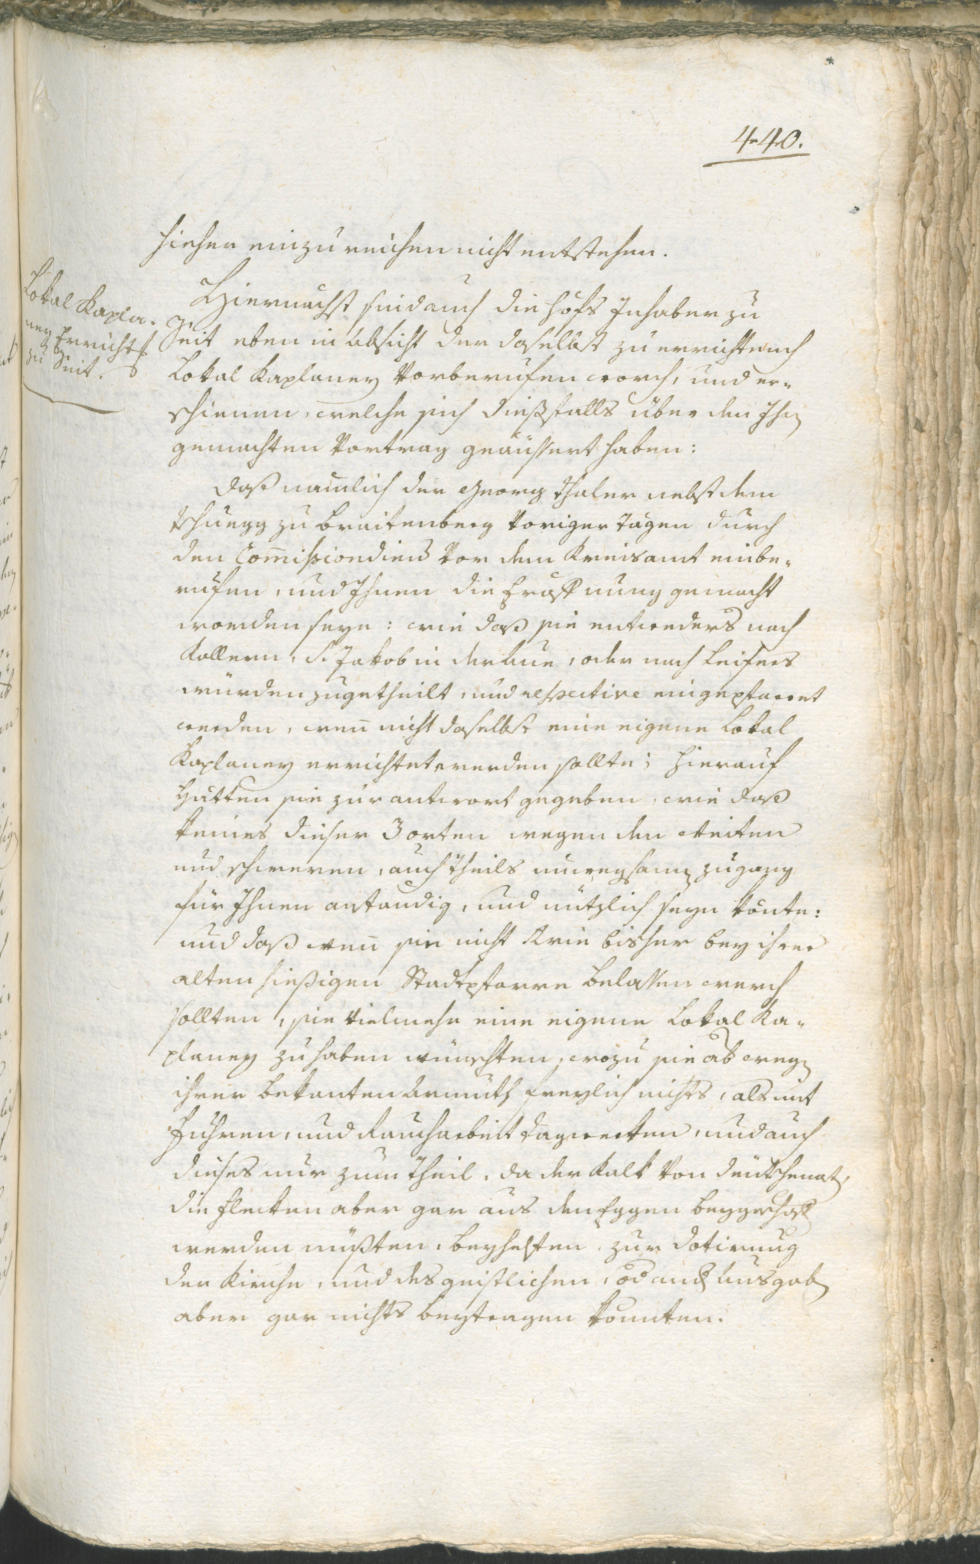 440.
hieher einzureichen nicht entstehen.
Lokal Kapla-
ney Errichtg
zu Seit.
Hiernächst sind auch die Hofs Inhaber zu
Seit eben in Absicht der daselbst zu errichtenden
Lokal Kaplaney Vorberufen word, und er-
schienen, welche sich diesfalls über den Ihn
gemachten Vortrag geäussert haben:
Daß nämlich der Georg Thaler nebst dem
Tschuegg zu Breitenberg voriger Tägen durch
den Commissiondiens Vor dem Kreisamt einbe-
rufen, und Ihnen die Eröffnung gemacht
worden seye: wie daß sie entweders nach
Kollern, St Jakob in der Aue, oder nach Leifers
würden zugetheilt, und respective eingepfarret
werden, wenn nicht daselbst eine eigene Lokal
Kaplaney errichtet werden sollte; hierauf
hätten sie zur antwort gegeben, wie daß
keines dieser 3 orten wegen den Weiten
und schweren, auch theils ungangsamen zugang
für Ihnen anständig, und nützlich seyn könte:
und daß wenn sie nicht wie bisher bey ihrer
alten hießigen Stadtpfarre belassen werd
sollten, sie vielmehr eine eigene Lokal Ka-
planey zu haben wünschten, wozu sie ab weg
ihrer bekanten Armuth freylich nichts, als mit
Fuhren, und Raucharbeit darwerken, und auch
dieses nur zum Theil, da der Kalk von Deutschenofn,
die Flecken aber gar aus den Eggen beygeschaft
werden müßten, beyhelfen, zur Dotierung
der Kirche, und des geistlichen, od and Ausgab
aber gar nichts beytragen könnten.